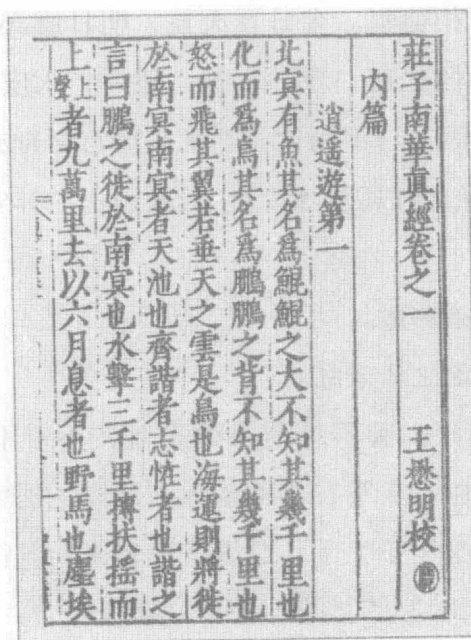 莊子南華真經卷之一 王懋明校
內篇
逍遥遊第一
北冥有魚其名爲鯤鯤之大不知其幾千里也
化而爲鳥其名爲鵬鵬之背不知其幾千里也
怒而飛其翼若垂天之雲是鳥也海運則將徙
於南冥南冥者天池也齊諧者志恠者也諧之
言曰鵬之徙於南冥也水擊三千里摶扶揺而
上上聲者九萬里去以六月息者也野馬也塵埃